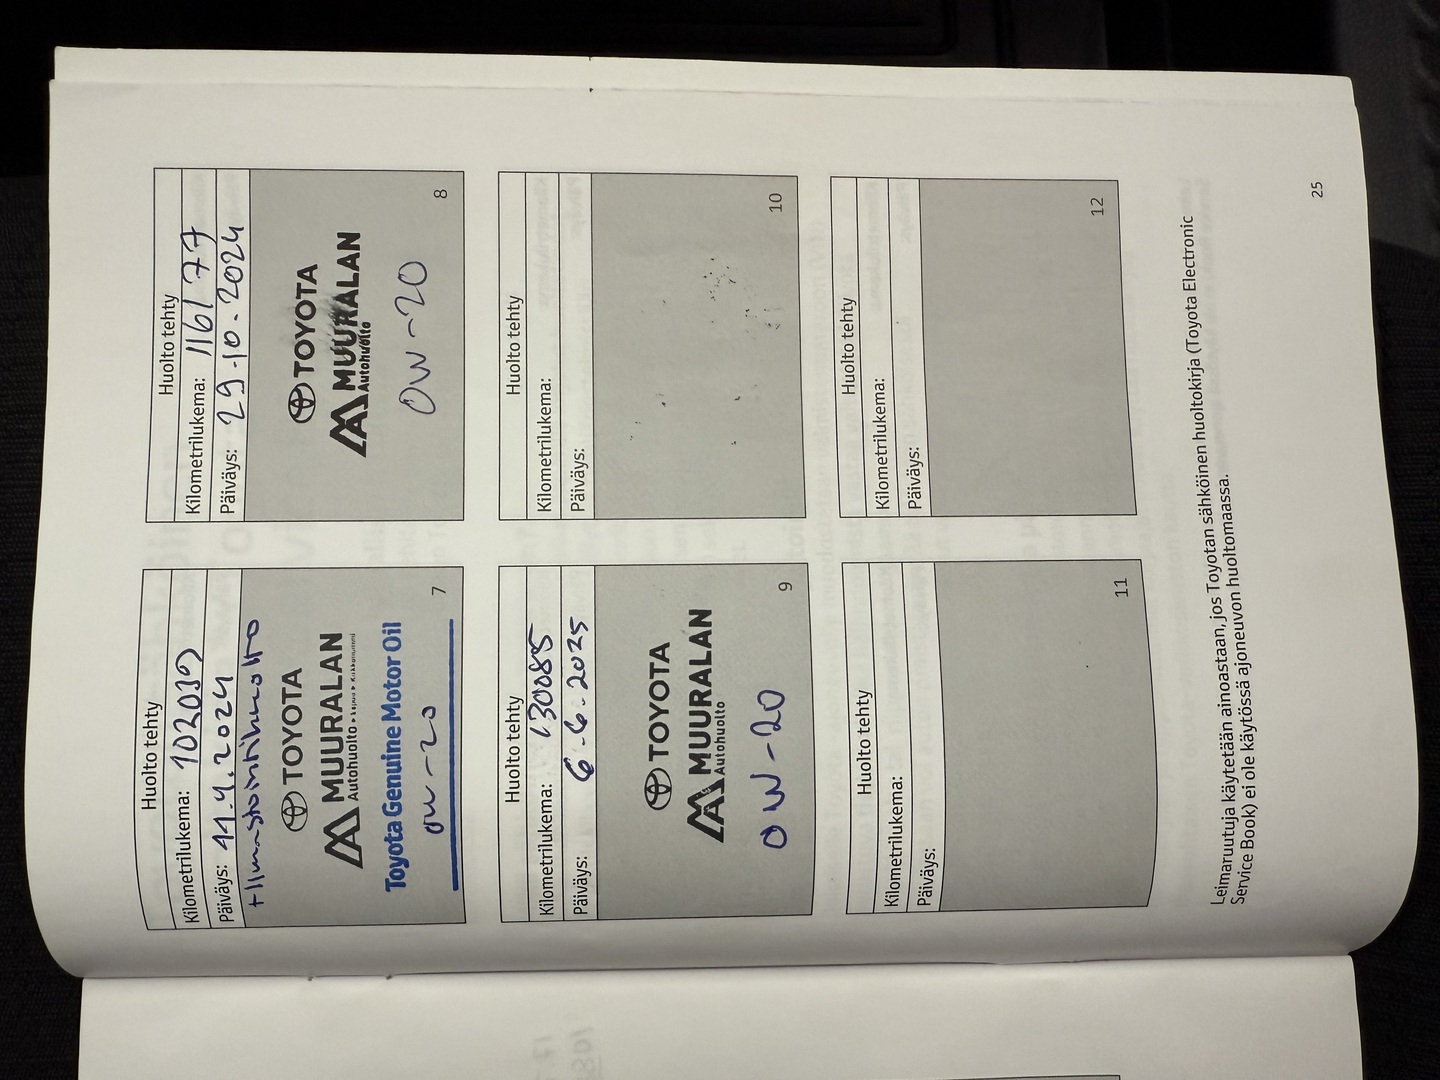 Huolto tehty
Kilometrilukema: 102039
Päiväys: 11.4.2024
+Ilmastointihuolto
TOYOTA
MUURALAN
Autohuolto
Toyota Genuine Motor Oil
0W-20
7
Huolto tehty
Kilometrilukema: 116177
Päiväys: 29.10.2024
TOYOTA
MUURALAN
Autohuolto
0W-20
8
Huolto tehty
Kilometrilukema: 130085
Päiväys: 6.6.2025
TOYOTA
MUURALAN
Autohuolto
0W-20
9
Huolto tehty
Kilometrilukema:
Päiväys:
10
Huolto tehty
Kilometrilukema:
Päiväys:
11
Huolto tehty
Kilometrilukema:
Päiväys:
12
Leimaruutuja käytetään ainoastaan, jos Toyotan sähköinen huoltokirja (Toyota Electronic
Service Book) ei ole käytössä ajoneuvon huoltomaassa.
25